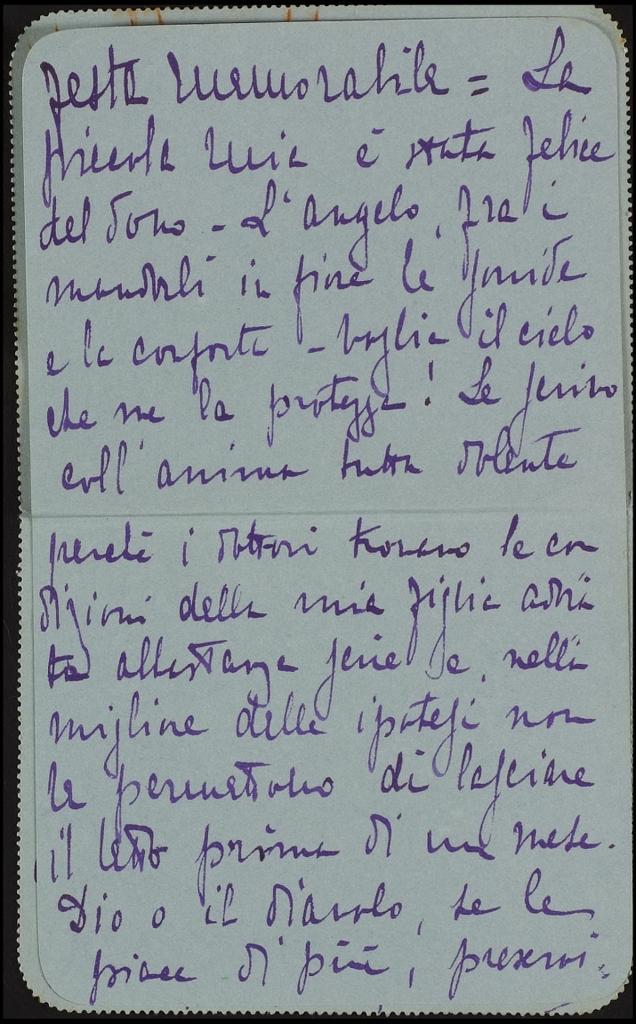 festa memorabile = La
piccola mia è stata felice
del dono - L'angelo, fra i
mandorli in fiore le sorride
e la conforta - voglia il cielo
che me la protegga! Le scrivo
coll'anima tutta dolente
perchè i dottori trovano le con
dizioni della mia figlia adora
ta abbastanza serie e, nella
migliore delle ipotesi non
le permettono di lasciare
il letto prima di un mese.
Dio o il diavolo, se le
piace di più, preservi-